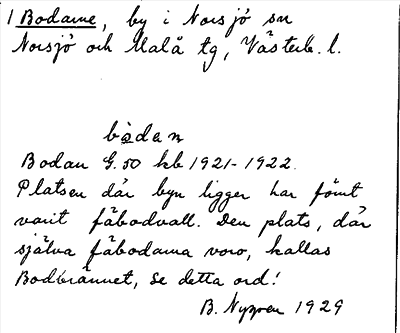 1 Bodarne, by i Norsjö sn
Norsjö och Malå tg, Västerb. l.
bòdan
Bodan G. 50 kb 1921-1922.
Platsen där byn ligger har förut
varit fäbodvall. Den plats, där
själva fäbodarna voro, kallas
Bodbrännet, se detta ord!
B. Nygren 1929